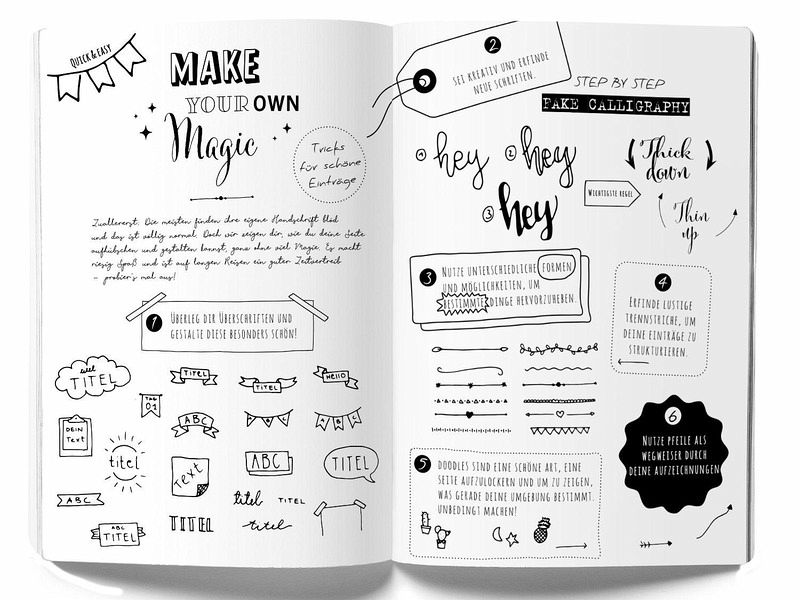 QUICK & EASY
MAKE
YOUR OWN
Magic
Tricks
für schöne
Einträge
Zuallererst: Die meisten finden ihre eigene Handschrift blöd
und das ist völlig normal. Doch wir zeigen dir, wie du deine Seite
aufhübschen und gestalten kannst, ganz ohne viel Magie. Es macht
riesig Spaß und ist auf langen Reisen ein guter Zeitvertreib
– probier's mal aus!
1
ÜBERLEG DIR ÜBERSCHRIFTEN UND
GESTALTE DIESE BESONDERS SCHÖN!
TITEL
TAG
01
TITEL
TITEL
Hello
DEIN
Text
titel
ABC
ABC
ABC
Text
ABC
TITEL
ABC
ABC
TITEL
TITEL
titel
TITEL
titel
2
SEI KREATIV UND ERFINDE
NEUE SCHRIFTEN.
STEP BY STEP
FAKE CALLIGRAPHY
1 hey
2 hey
3 hey
WICHTIGSTE REGEL
Thick
down
Thin
up
3
NUTZE UNTERSCHIEDLICHE FORMEN
UND MÖGLICHKEITEN, UM
BESTIMMTE DINGE HERVORZUHEBEN.
4
ERFINDE LUSTIGE
TRENNSTRICHE, UM
DEINE EINTRÄGE ZU
STRUKTURIEREN.
5
DOODLES SIND EINE SCHÖNE ART, EINE
SEITE AUFZULOCKERN UND UM ZU ZEIGEN,
WAS GERADE DEINE UMGEBUNG BESTIMMT.
UNBEDINGT MACHEN!
6
NUTZE PFEILE ALS
WEGWEISER DURCH
DEINE AUFZEICHNUNGEN